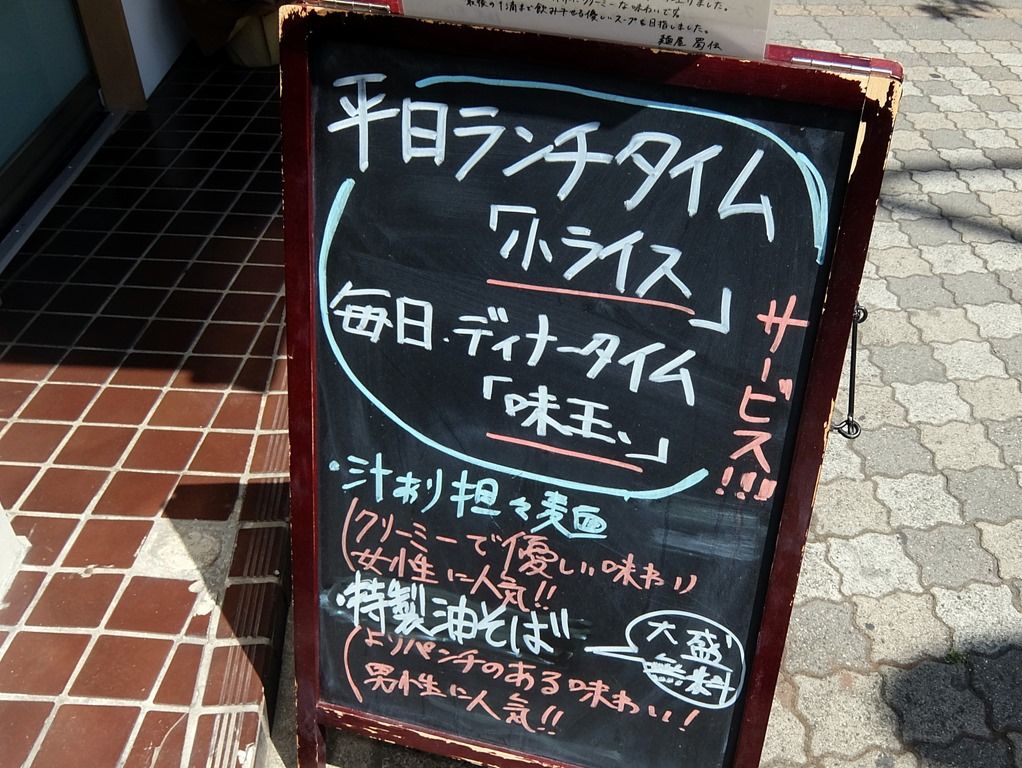 最後の1滴まで飲み干せる優しいスープを目指しました。
麺屋 蜀伝
平日ランチタイム
「小ライス」
毎日・ディナータイム
「味玉」
サービス!!!
・汁あり担々麺
(クリーミーで優しい味わり
女性に人気!!
・特製油そば
大盛
無料
(よりパンチのある味わい!
男性に人気!!